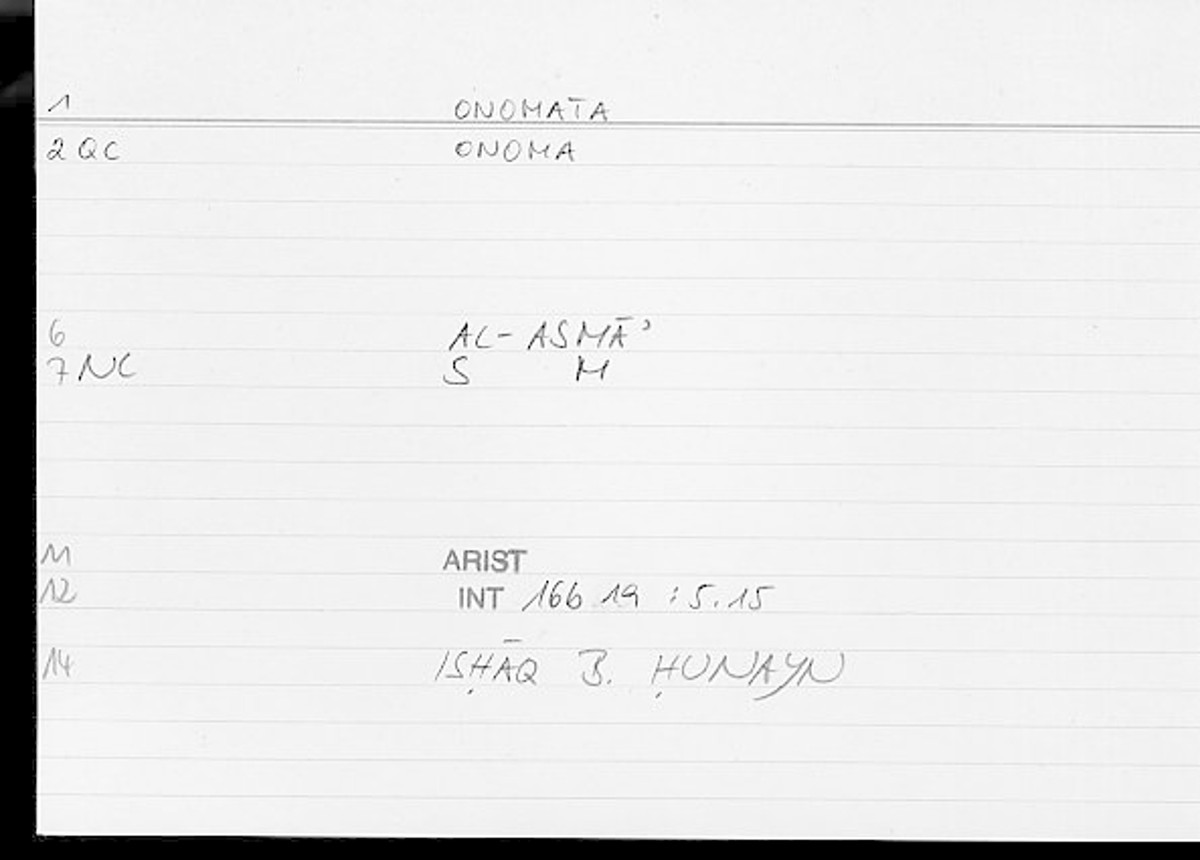 1 ONOMATA
2 QC ONOMA
6 AL-ASMĀʾ
7 NC S M
11 ARIST
12 INT 16b 19 : 5.15
14 ISḤĀQ B. ḤUNAYN